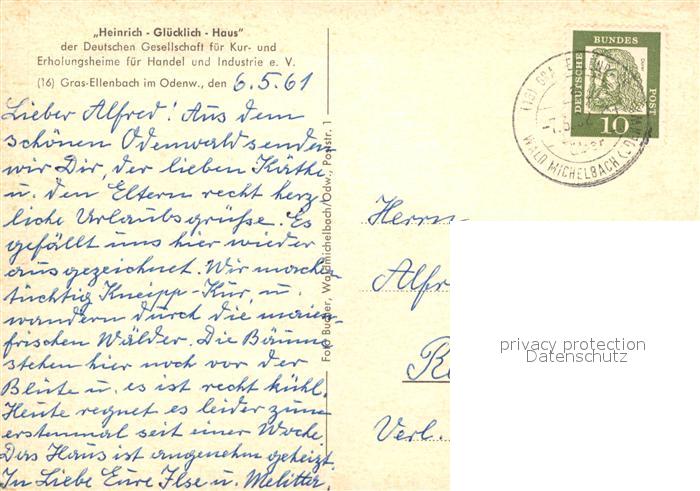 „Heinrich - Glücklich - Haus"
der Deutschen Gesellschaft für Kur- und
Erholungsheime für Handel und Industrie e. V.
(16) Gras-Ellenbach im Odenw., den 6.5.61
Lieber Alfred! Aus dem
schönen Odenwald senden
wir Dir, der lieben Käthe
u. den Eltern recht herz-
liche Urlaubsgrüße. Es
gefällt uns hier wieder
ausgezeichnet. Wir machen
tüchtig Kneipp-Kur, u.
wandern durch die maien-
frischen Wälder. Die Bäume
stehen hier noch vor der
Blüte u. es ist recht kühl.
Heute regnet es leider zum
erstenmal seit einer Woche.
Das Haus ist angenehm geheizt.
In Liebe Eure Ilse u. Melitta.
Foto Bucher, Waldmichelbach/Odw., Poststr. 1
DEUTSCHE BUNDES POST
Dürer
10
(16)
WALD MICHELBACH (
Herrn
Alfr
Verl.
privacy protection
Datenschutz